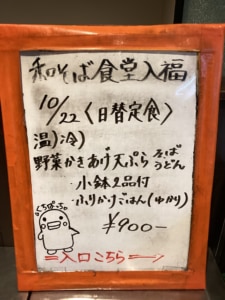 和そば食堂入福
10/22〈日替定食〉
温)冷)
野菜かきあげ天ぷら そば うどん
・小鉢2品付
・ふりかけごはん(ゆかり)
¥900-
⇒入口こちら⇒